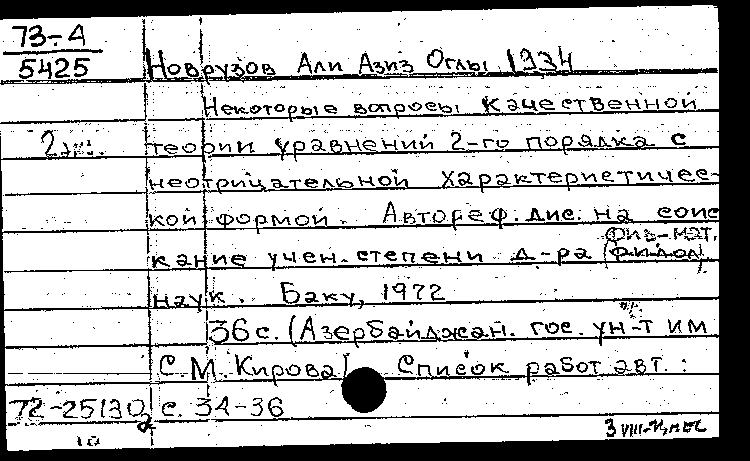 73-А
5425
Новрузов Али Азиз Оглы 1934
Некоторые вопросы качественной
2 экз. теории уравнений 2-го порядка с
неотрицательной характеристичес-
кой формой. Автореф. дис. на соис
физ-мат.
кание учен. степени д-ра (филол)
наук. Баку, 1972
36 с. (Азербайджан. гос. ун-т им
С.М. Кирова) Список работ авт.:
72-25130 с. 34-36